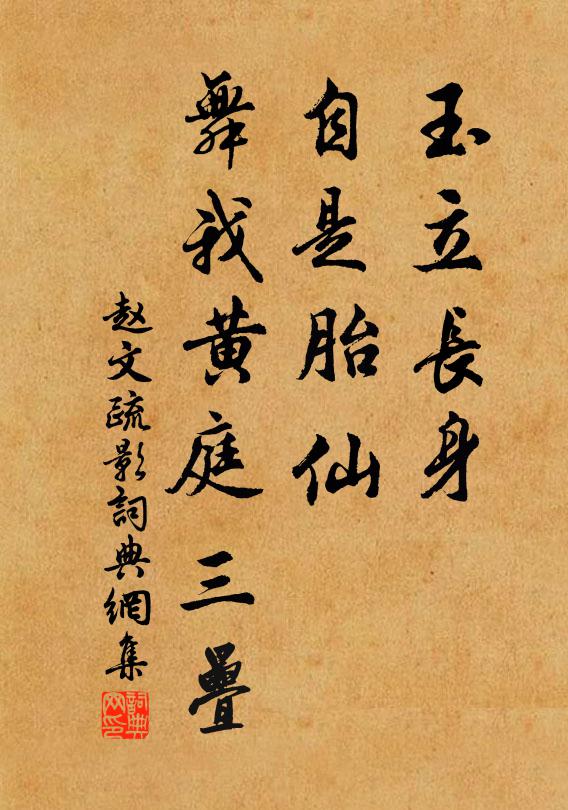 玉立長身
自是胎仙
舞我黃庭三疊
赵文疏影詞典網集
詞典网印